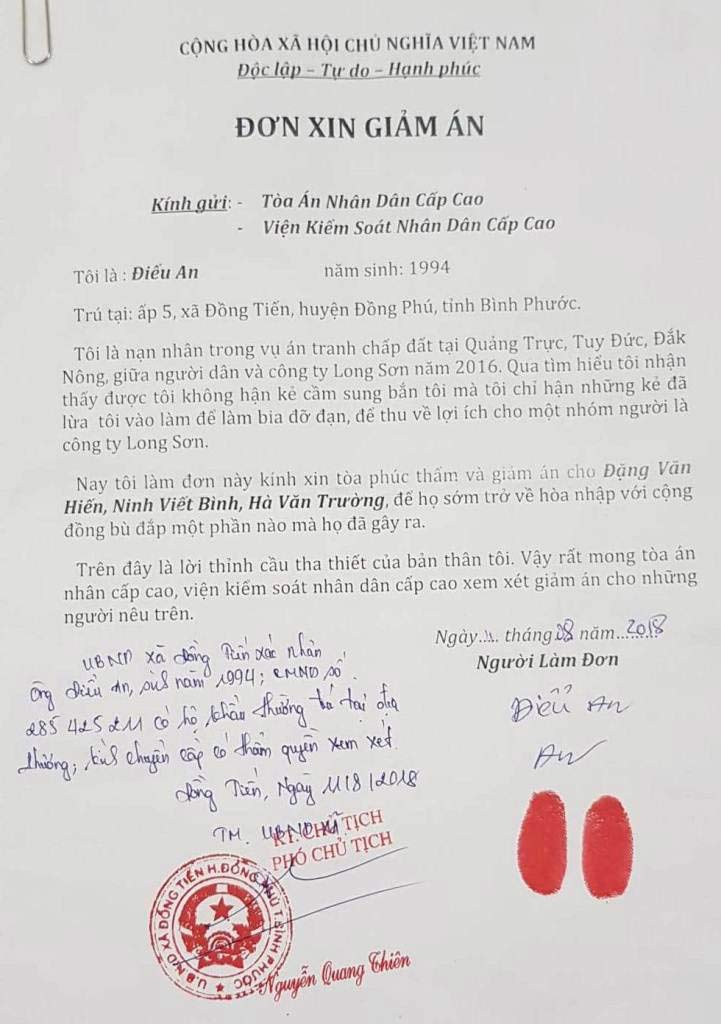 CỘNG HÒA XÃ HỘI CHỦ NGHĨA VIỆT NAM
Độc lập – Tự do – Hạnh phúc
ĐƠN XIN GIẢM ÁN
Kính gửi: - Tòa Án Nhân Dân Cấp Cao
- Viện Kiểm Soát Nhân Dân Cấp Cao
Tôi là : Điểu An năm sinh: 1994
Trú tại: ấp 5, xã Đồng Tiến, huyện Đồng Phú, tỉnh Bình Phước.
Tôi là nạn nhân trong vụ án tranh chấp đất tại Quảng Trực, Tuy Đức, Đắk
Nông, giữa người dân và công ty Long Sơn năm 2016. Qua tìm hiểu tôi nhận
thấy được tôi không hận kẻ cầm sung bắn tôi mà tôi chỉ hận những kẻ đã
lừa tôi vào làm để làm bia đỡ đạn, để thu về lợi ích cho một nhóm người là
công ty Long Sơn.
Nay tôi làm đơn này kính xin tòa phúc thẩm và giảm án cho Đặng Văn
Hiến, Ninh Viết Bình, Hà Văn Trường, để họ sớm trở về hòa nhập với cộng
đồng bù đắp một phần nào mà họ đã gây ra.
Trên đây là lời thỉnh cầu tha thiết của bản thân tôi. Vậy rất mong tòa án
nhân cấp cao, viện kiểm soát nhân dân cấp cao xem xét giảm án cho những
người nêu trên.
Ngày tháng 08 năm 2018
Người Làm Đơn
UBND xã Đồng Tiến xác nhận
ông Điểu An, sinh năm 1994; CMND số
285 425 211 có hộ khẩu thường trú tại địa
phương; kính chuyển cấp có thẩm quyền xem xét.
Đồng Tiến, Ngày 1/8/2018
TM. UBND xã
KT. CHỦ TỊCH
PHÓ CHỦ TỊCH
Điểu An
An
U.B.N.D XÃ ĐỒNG TIẾN H.ĐỒNG PHÚ T.BÌNH PHƯỚC
Nguyễn Quang Thiên